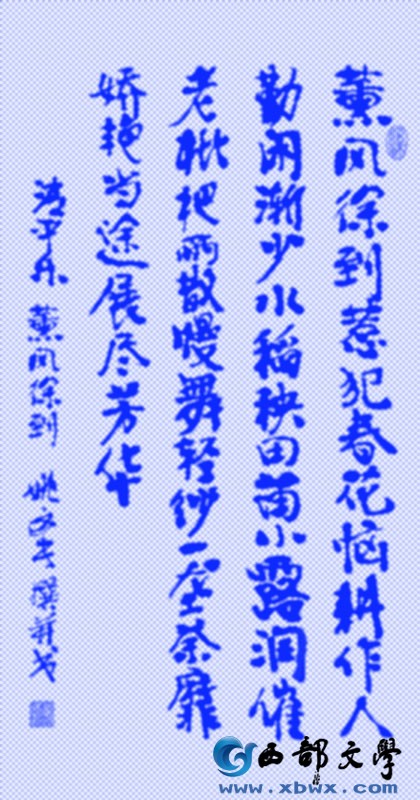 薰风徐到惹犯春花恼耕作人
勤闲渐少水稻秧田苗小露润催
老枇杷雨散慢舞轻纱一垄荼靡
娇艳当途展尽芳华
清平乐 薰风徐到 姚撰并书
西部文學
www.xbwx.com